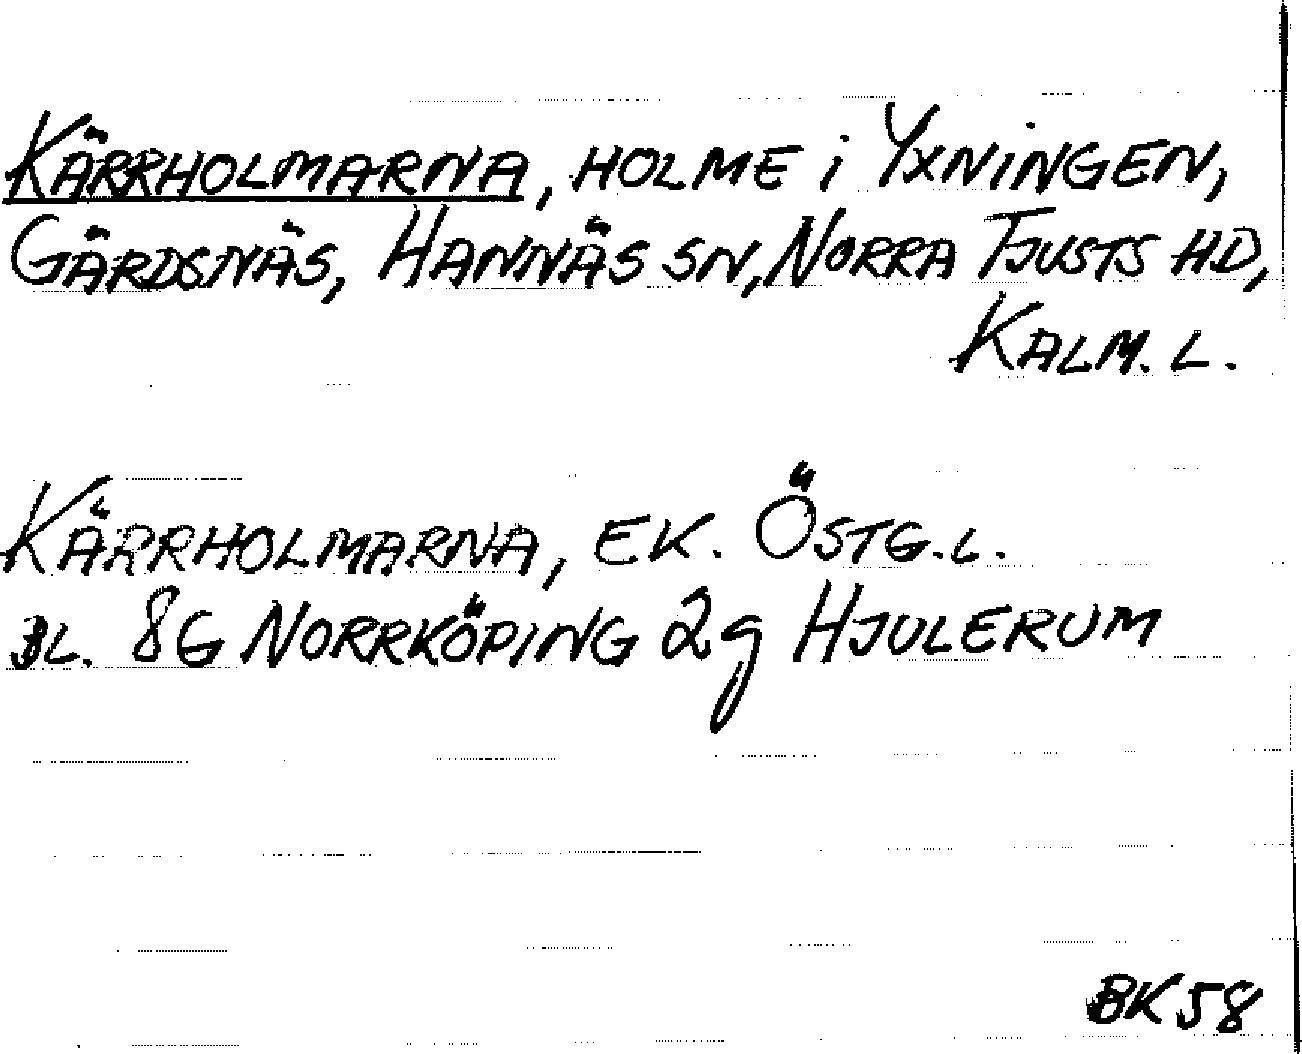 KÄRRHOLMARNA, HOLME i YXNINGEN,
GÄRDSNÄS, HANNÄS SN, NORRA TJUSTS HD,
KALM. L.
KÄRRHOLMARNA, EK. ÖSTG. L.
BL. 8G NORRKÖPING 2g HJULERUM
BK 58